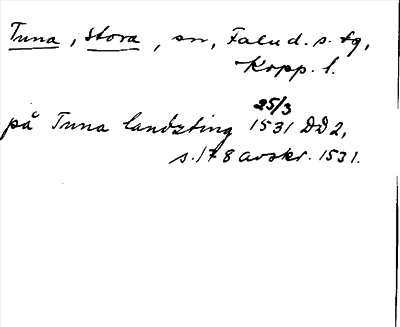 Tuna, Stora, sn, Falu d. s. tg,
Kopp. l.
25/3
på Tuna landzting 1531 DD2,
s. 178 avskr. 1531.